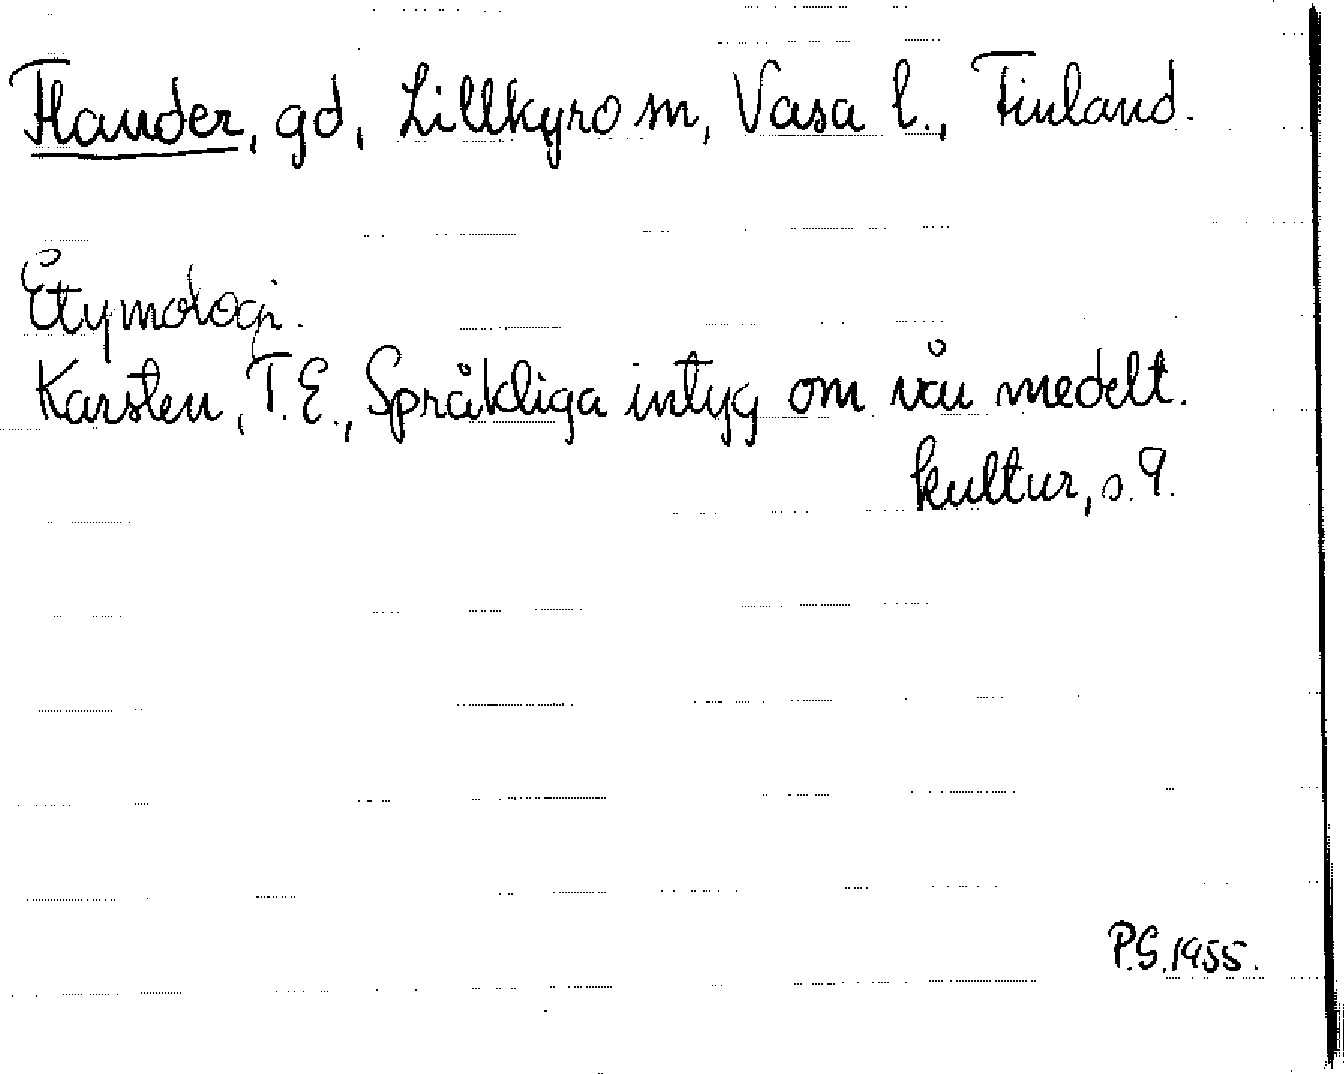 Flander, gd, Lillkyro sn, Vasa l., Finland.
Etymologi.
Karsten, T.E., Språkliga intyg om vår medelt.
kultur, s. 9.
P.S. 1955.